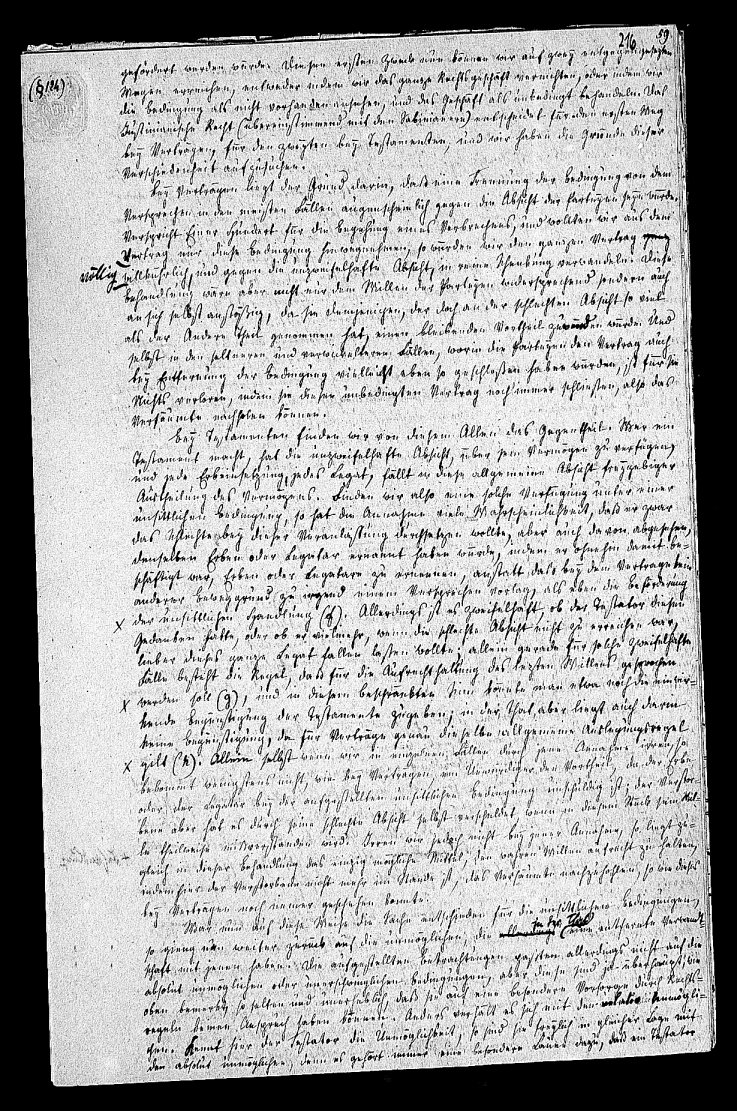 216 59
(§124)
gefördert werden würde. Diesen ersten Zweck nun können wir auf zwey entgegengesetzten
Wegen erreichen, entweder indem wir das ganze Rechtsgeschäft vernichten, oder indem wir
die Bedingung als nicht vorhanden ansehen, und das Geschäft als unbedingt behandeln. Das
Justinianische Recht (übereinstimmend mit den Sabinianern) entscheidet für den ersten Weg
bey Verträgen, für den zweyten bey Testamenten, und wir haben die Gründe dieser
Verschiedenheit aufzusuchen.
Bey Verträgen liegt der Grund darin, daß eine Trennung der Bedingung von dem
Versprechen in den meisten Fällen augenscheinlich gegen die Absicht der Parteyen seyn würde.
Verspricht Einer Hundert für die Begehung eines Verbrechens, und wollten wir aus dem
Vertrag nur diese Bedingung hinwegnehmen, so würden wir den ganzen Vertrag
völlig willkührlich, und gegen die unzweifelhafte Absicht, in reine Schenkung verwandeln. Diese
Behandlung wäre aber nicht nur dem Willen der Parteyen widersprechend sondern auch
an sich selbst anstößig, da sie demjenigen, der doch an der schlechten Absicht so viel
als der Andere Theil genommen hat, einen bleibenden Vortheil zuwenden würde. Und
selbst in den seltneren und verwickelteren Fällen, worin die Parteyen den Vertrag auch
bey Entfernung der Bedingung vielleicht eben so geschlossen haben würden, ist für sie
Nichts verloren, indem sie diesen unbedingten Vertrag noch immer schließen, also das
Versäumte nachholen können.
Bey Testamenten finden wir von diesem Allen das Gegentheil. Wer ein
Testament macht, hat die unzweifelhafte Absicht, über sein Vermögen zu verfügen,
und jede Erbeinsetzung, jedes Legat, fällt in diese allgemeine Absicht freygebiger
Austheilung des Vermögens. Finden wir also eine solche Verfügung unter einer
unsittlichen Bedingung, so hat die Annahme viele Wahrscheinlichkeit, daß er zwar
das Schlechte bey dieser Veranlassung durchsetzen wollte, aber auch davon abgesehen,
denselben Erben oder Legatar ernannt haben würde, indem er ohnehin damit be-
schäftigt war, Erben oder Legatare zu ernennen, anstatt daß bey dem Vertrage kein
anderer Beweggrund zu irgend einem Versprechen vorlag, als eben die Beförderung
der unsittlichen Handlung (f). Allerdings ist es zweifelhaft, ob der Testator diesen
Gedanken hatte, oder ob er vielmehr, wenn die schlechte Absicht nicht zu erreichen war,
lieber dieses ganze Legat fallen lassen wollte; allein gerade für solche zweifelhafte
Fälle besteht die Regel, daß für die Aufrechthaltung des letzten Willens gesprochen
werden soll (g), und in diesem beschränkten Sinn könnte man etwa noch die einwir-
kende Begünstigung der Testamente zugeben; in der That aber liegt auch darin
keine Begünstigung, da für Verträge genau dieselbe allgemeine Auslegungsregel
gilt (h). Allein selbst wenn wir in einzelnen Fällen durch jene Annahme irren, so
bekommt wenigstens nicht, wie bey Verträgen, ein Unwürdiger den Vortheil, da der Erbe
oder der Legatar bey der aufgestellten unsittlichen Bedingung unschuldig ist; der Verstor-
bene aber hat es durch seine schlechte Absicht selbst verschuldet, wenn in diesem Stück sein Wil-
le theilweise misverstanden wird. Irren wir jedoch nicht bey jener Annahme, so liegt zu-
gleich in dieser Behandlung das einzig mögliche Mittel, den wahren Willen aufrecht zu halten,
indem hier der Verstorbene nicht mehr im Stande ist, das Versäumte nachzuholen, so wie dieses
bey Verträgen noch immer geschehen konnte.
War nun auf diese Weise die Sache entschieden für die unsittlichen Bedingungen,
so gieng man weiter zurück auf die unmöglichen, die zum Theil eine entfernte Verwandt-
schaft mit jenen haben. Die aufgestellten Betrachtungen paßten allerdings nicht auf die
absolut unmöglichen oder unerschwinglichen Bedingungen, aber diese sind ja überhaupt, wie
oben bemerkt, so selten und unerheblich, daß sie auf eine besondere Vorsorge durch Rechts-
regeln keinen Anspruch haben können. Anders verhält es sich mit den relativ unmögli-
chen. Kennt hier der Testator die Unmöglichkeit, so sind sie freylich in gleicher Lage mit
den absolut unmöglichen, denn es gehört immer eine besondere Laune dazu, daß ein Testator